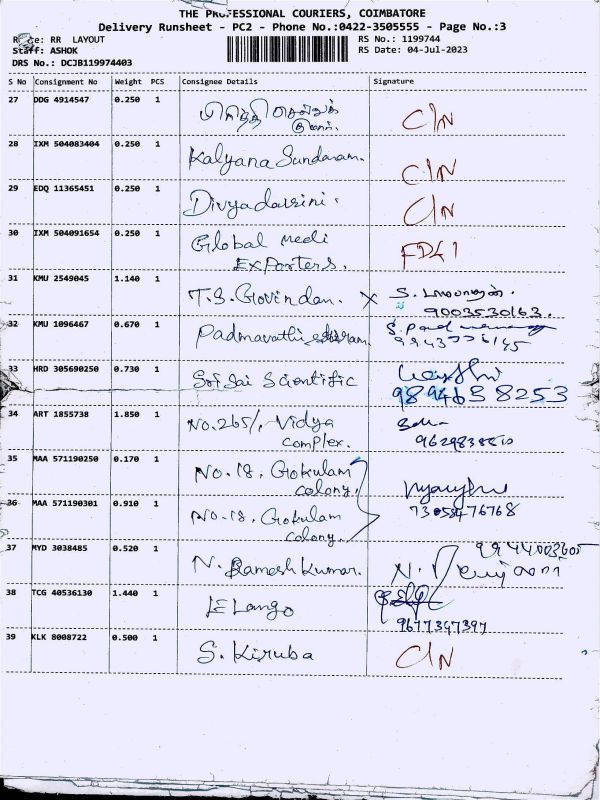 THE PROFESSIONAL COURIERS, COIMBATORE
Delivery Runsheet - PC2 - Phone No.:0422-3505555 - Page No.:3
RR LAYOUT RS No.: 1199744
Staff: ASHOK RS Date: 04-Jul-2023
DRS No.: DCJB119974403
S No Consignment No Weight PCS Consignee Details Signature
27 DDG 4914547 0.250 1 C/N
28 IXM 504083404 0.250 1 Kalyana Sundaram. C/N
29 EDQ 11365451 0.250 1 Divyadarsini. C/N
30 IXM 504091654 0.250 1 Global medi
Exporters.
31 KMU 2549045 1.140 1 T.S. Govindan. X S.
9003530163.
32 KMU 1096467 0.670 1 Padmavathi
33 HRD 305690250 0.730 1 Sri Sai Scientific
9894658253
34 ART 1855738 1.850 1 No.265/, Vidya
complex.
35 MAA 571190250 0.170 1 No.18, Gokulam
colony.
36 MAA 571190301 0.910 1 No.18, Gokulam
colony.
37 MYD 3038485 0.520 1 N. Ramesh Kumar. N.
38 TCG 40536130 1.440 1 Elango
9677347397
39 KLK 8008722 0.500 1 S. Kiruba C/N